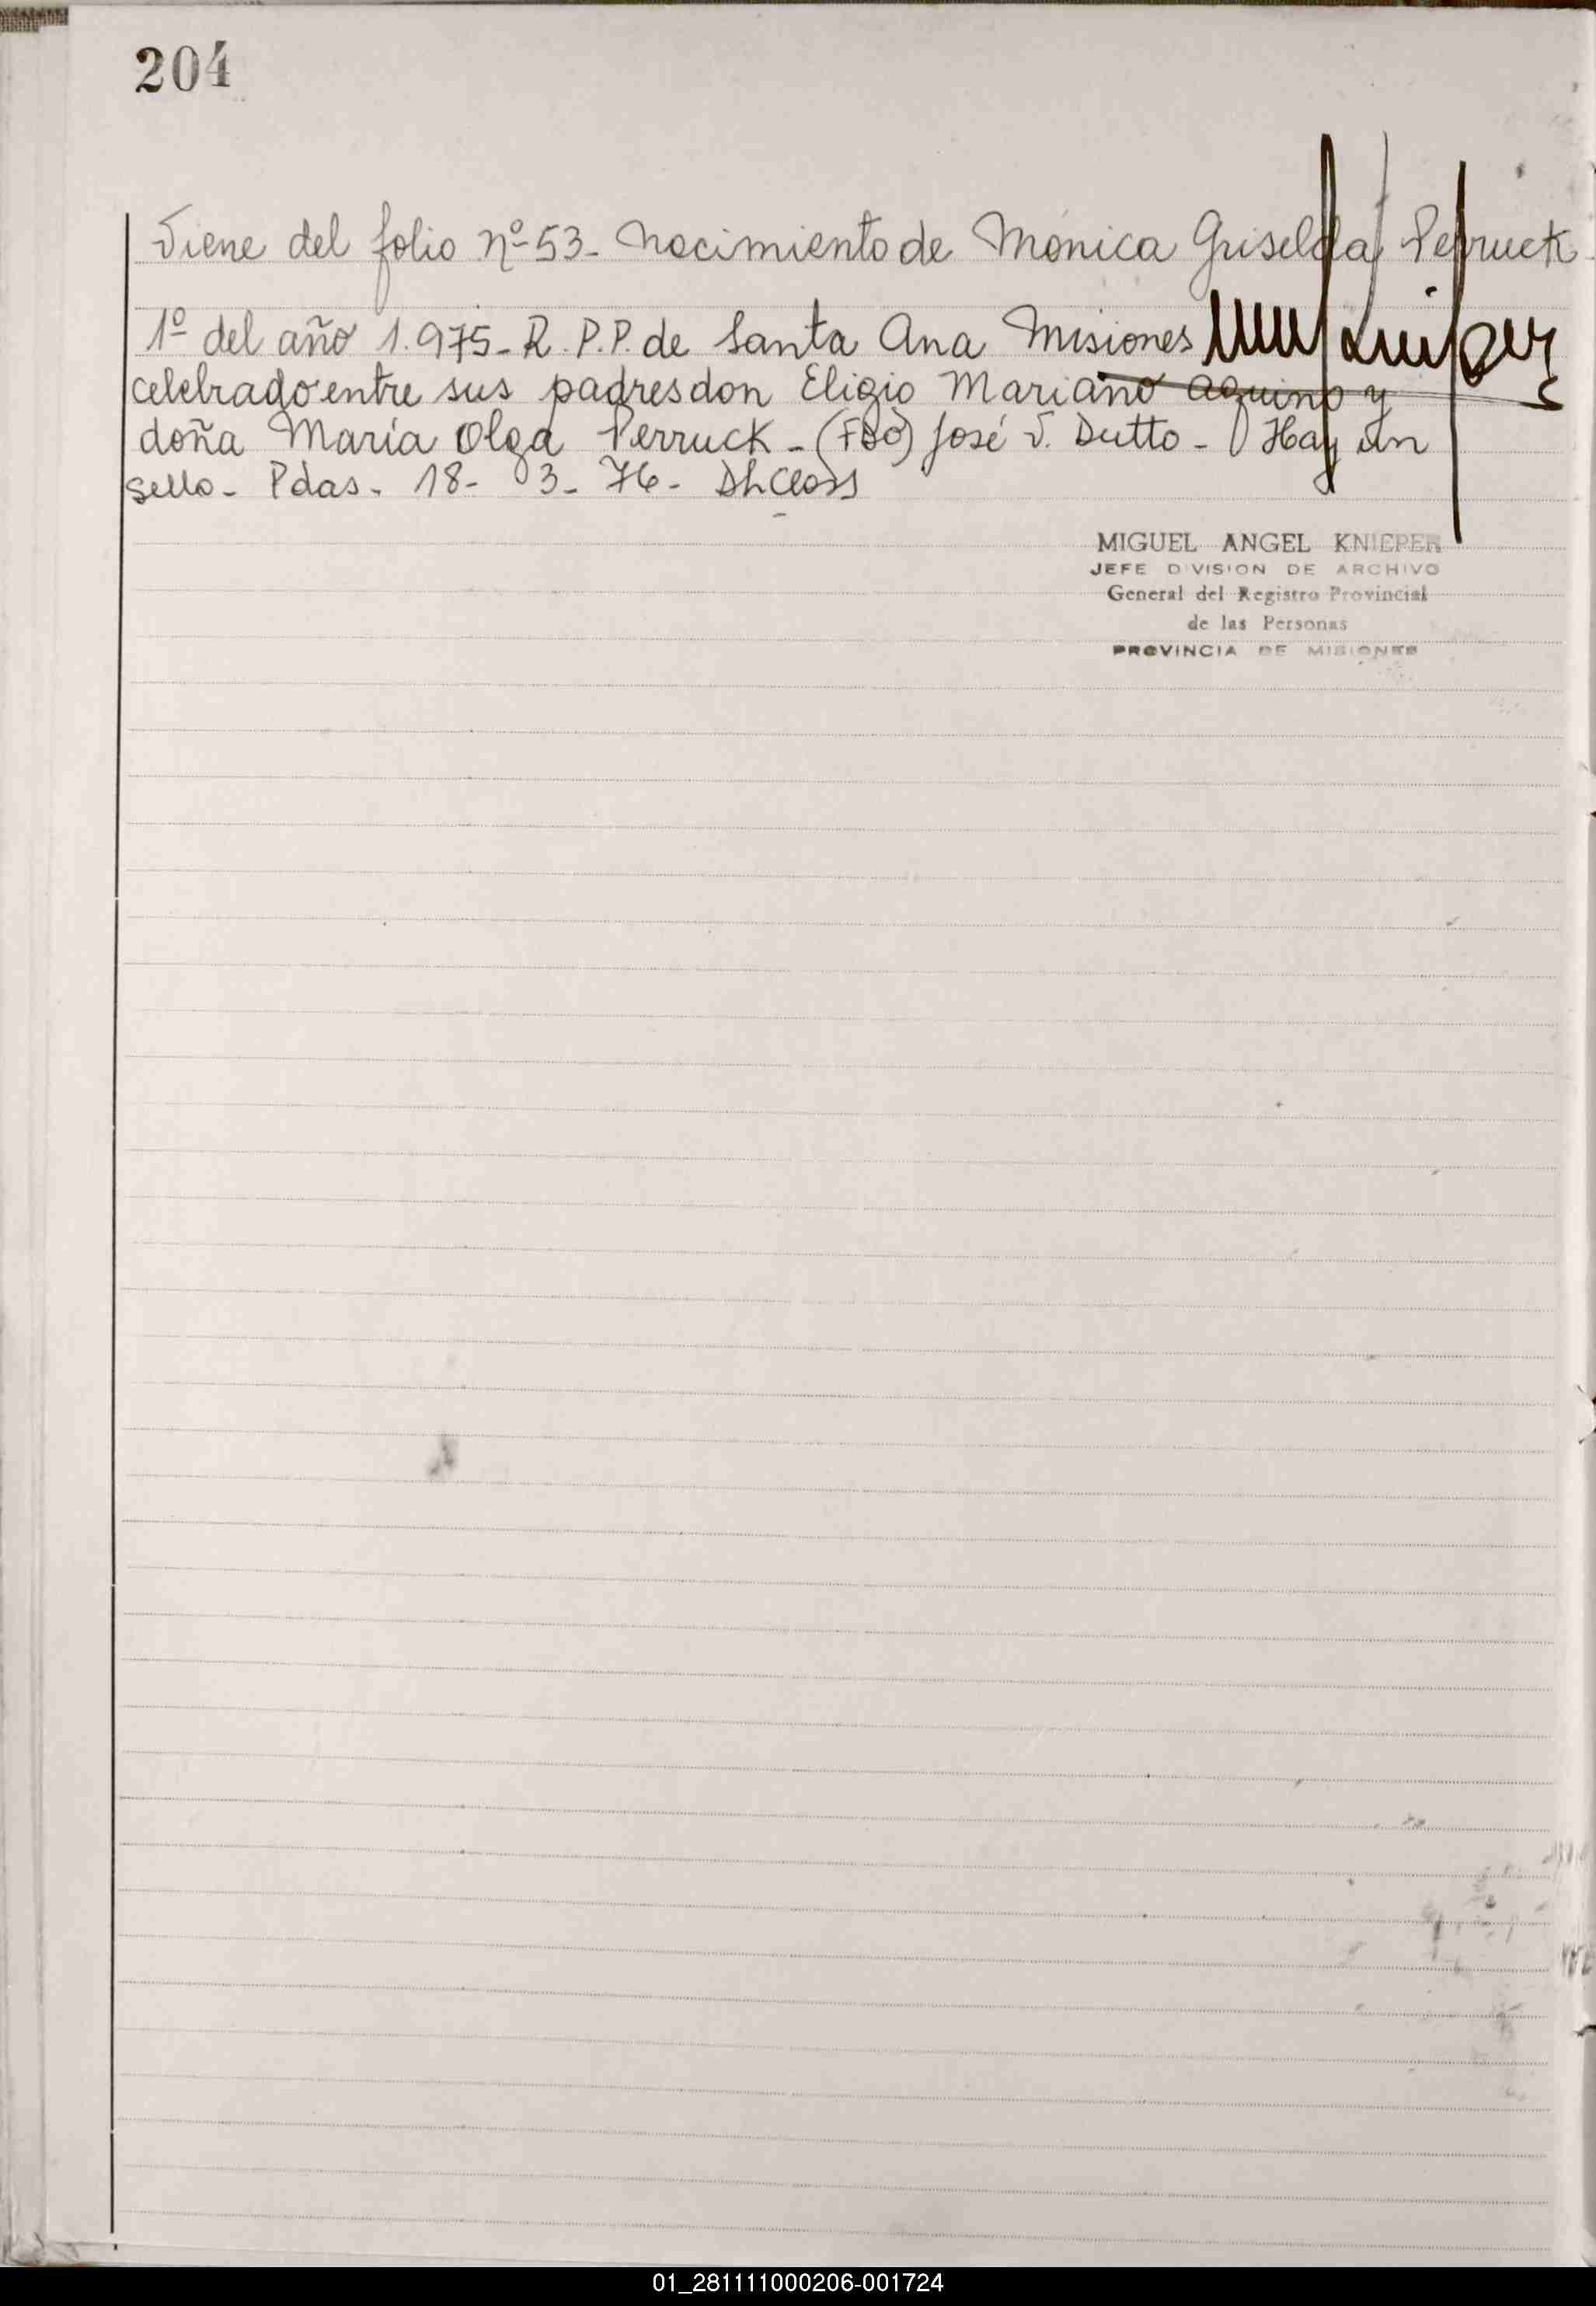 204
Viene del folio Nº 53- Nacimiento de Mónica Griselda Perruck-
1º del año 1.975- R. P.P. de Santa Ana Misiones
celebrado entre sus padres don Eligio Mariano Aquino y
doña María Olga Perruck - (FDO) José V. Dutto - Hay un
sello- Pdas- 18- 3- 76-
MIGUEL ANGEL KNIEPER
JEFE DIVISION DE ARCHIVO
General del Registro Provincial
de las Personas
PROVINCIA DE MISIONES
01_281111000206-001724